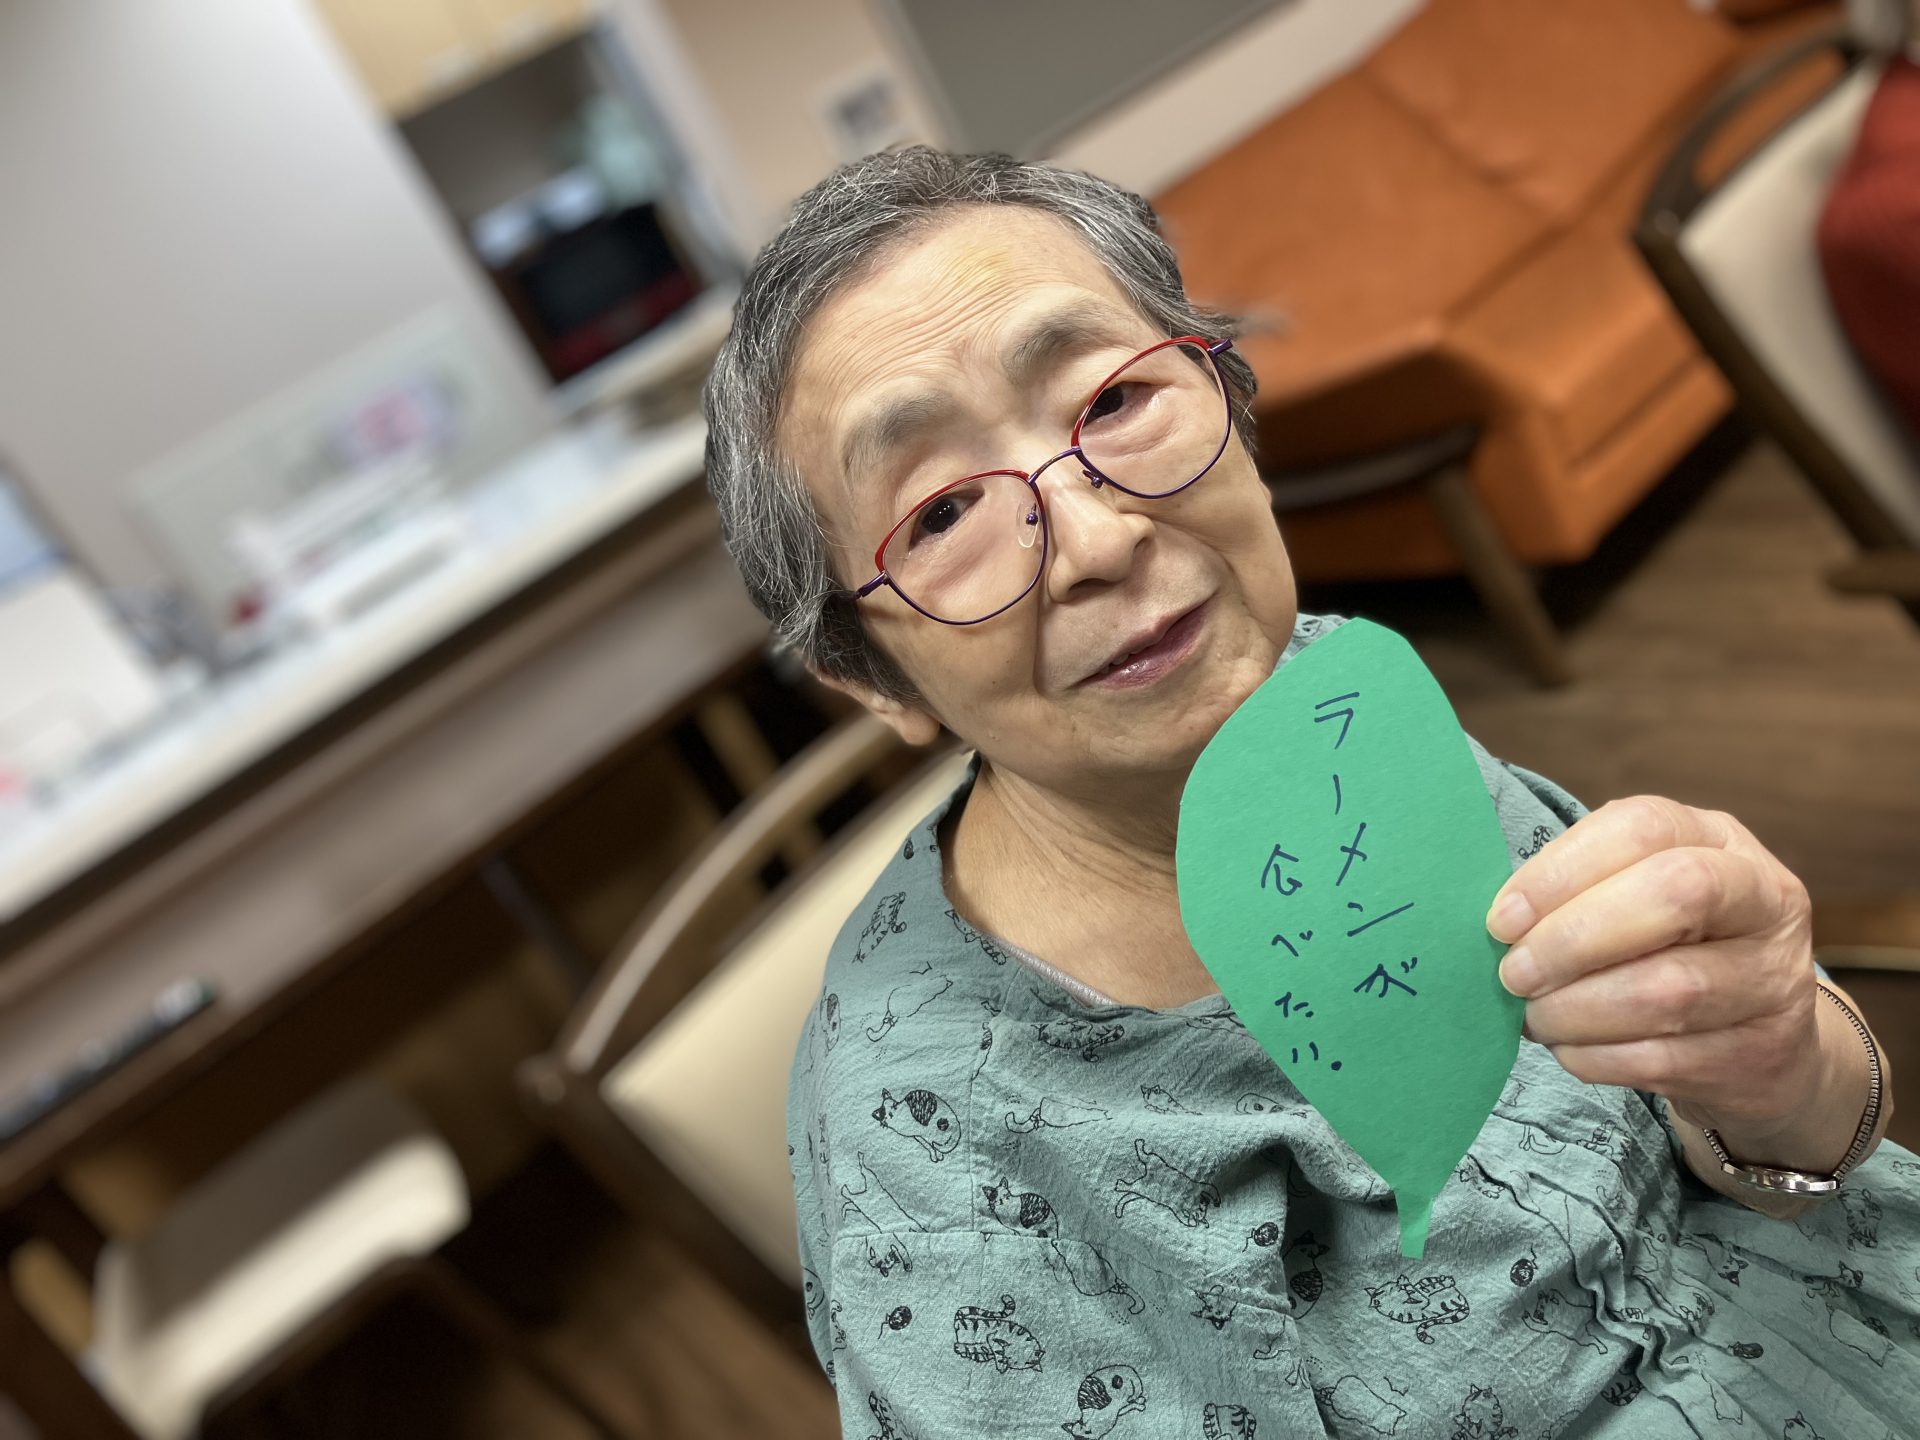 ラーメンが
食べたい。